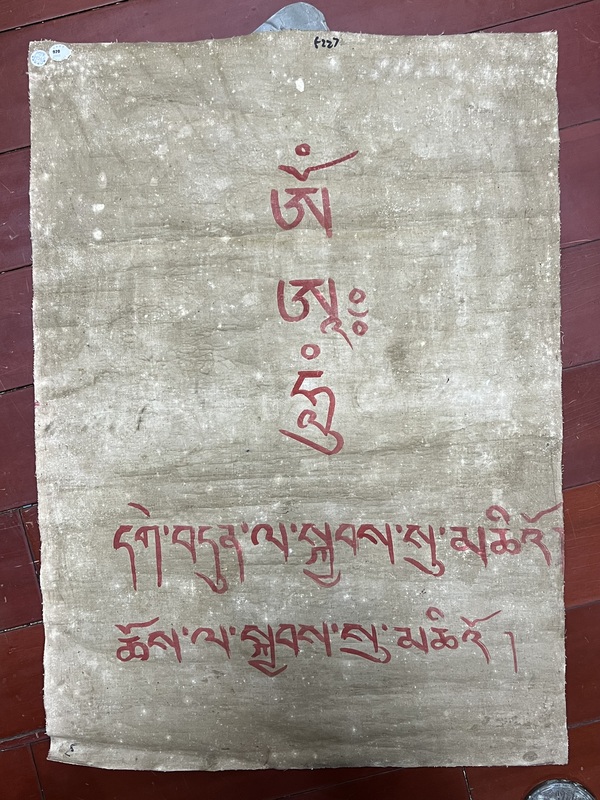 ཨོཾ
ཨཱཿ
ཧཱུཾ
དགེ་བདུན་ལ་སྐྱབས་སུ་མཆིའོ
ཆོས་ལ་སྐྱབས་སུ་མཆིའོ །